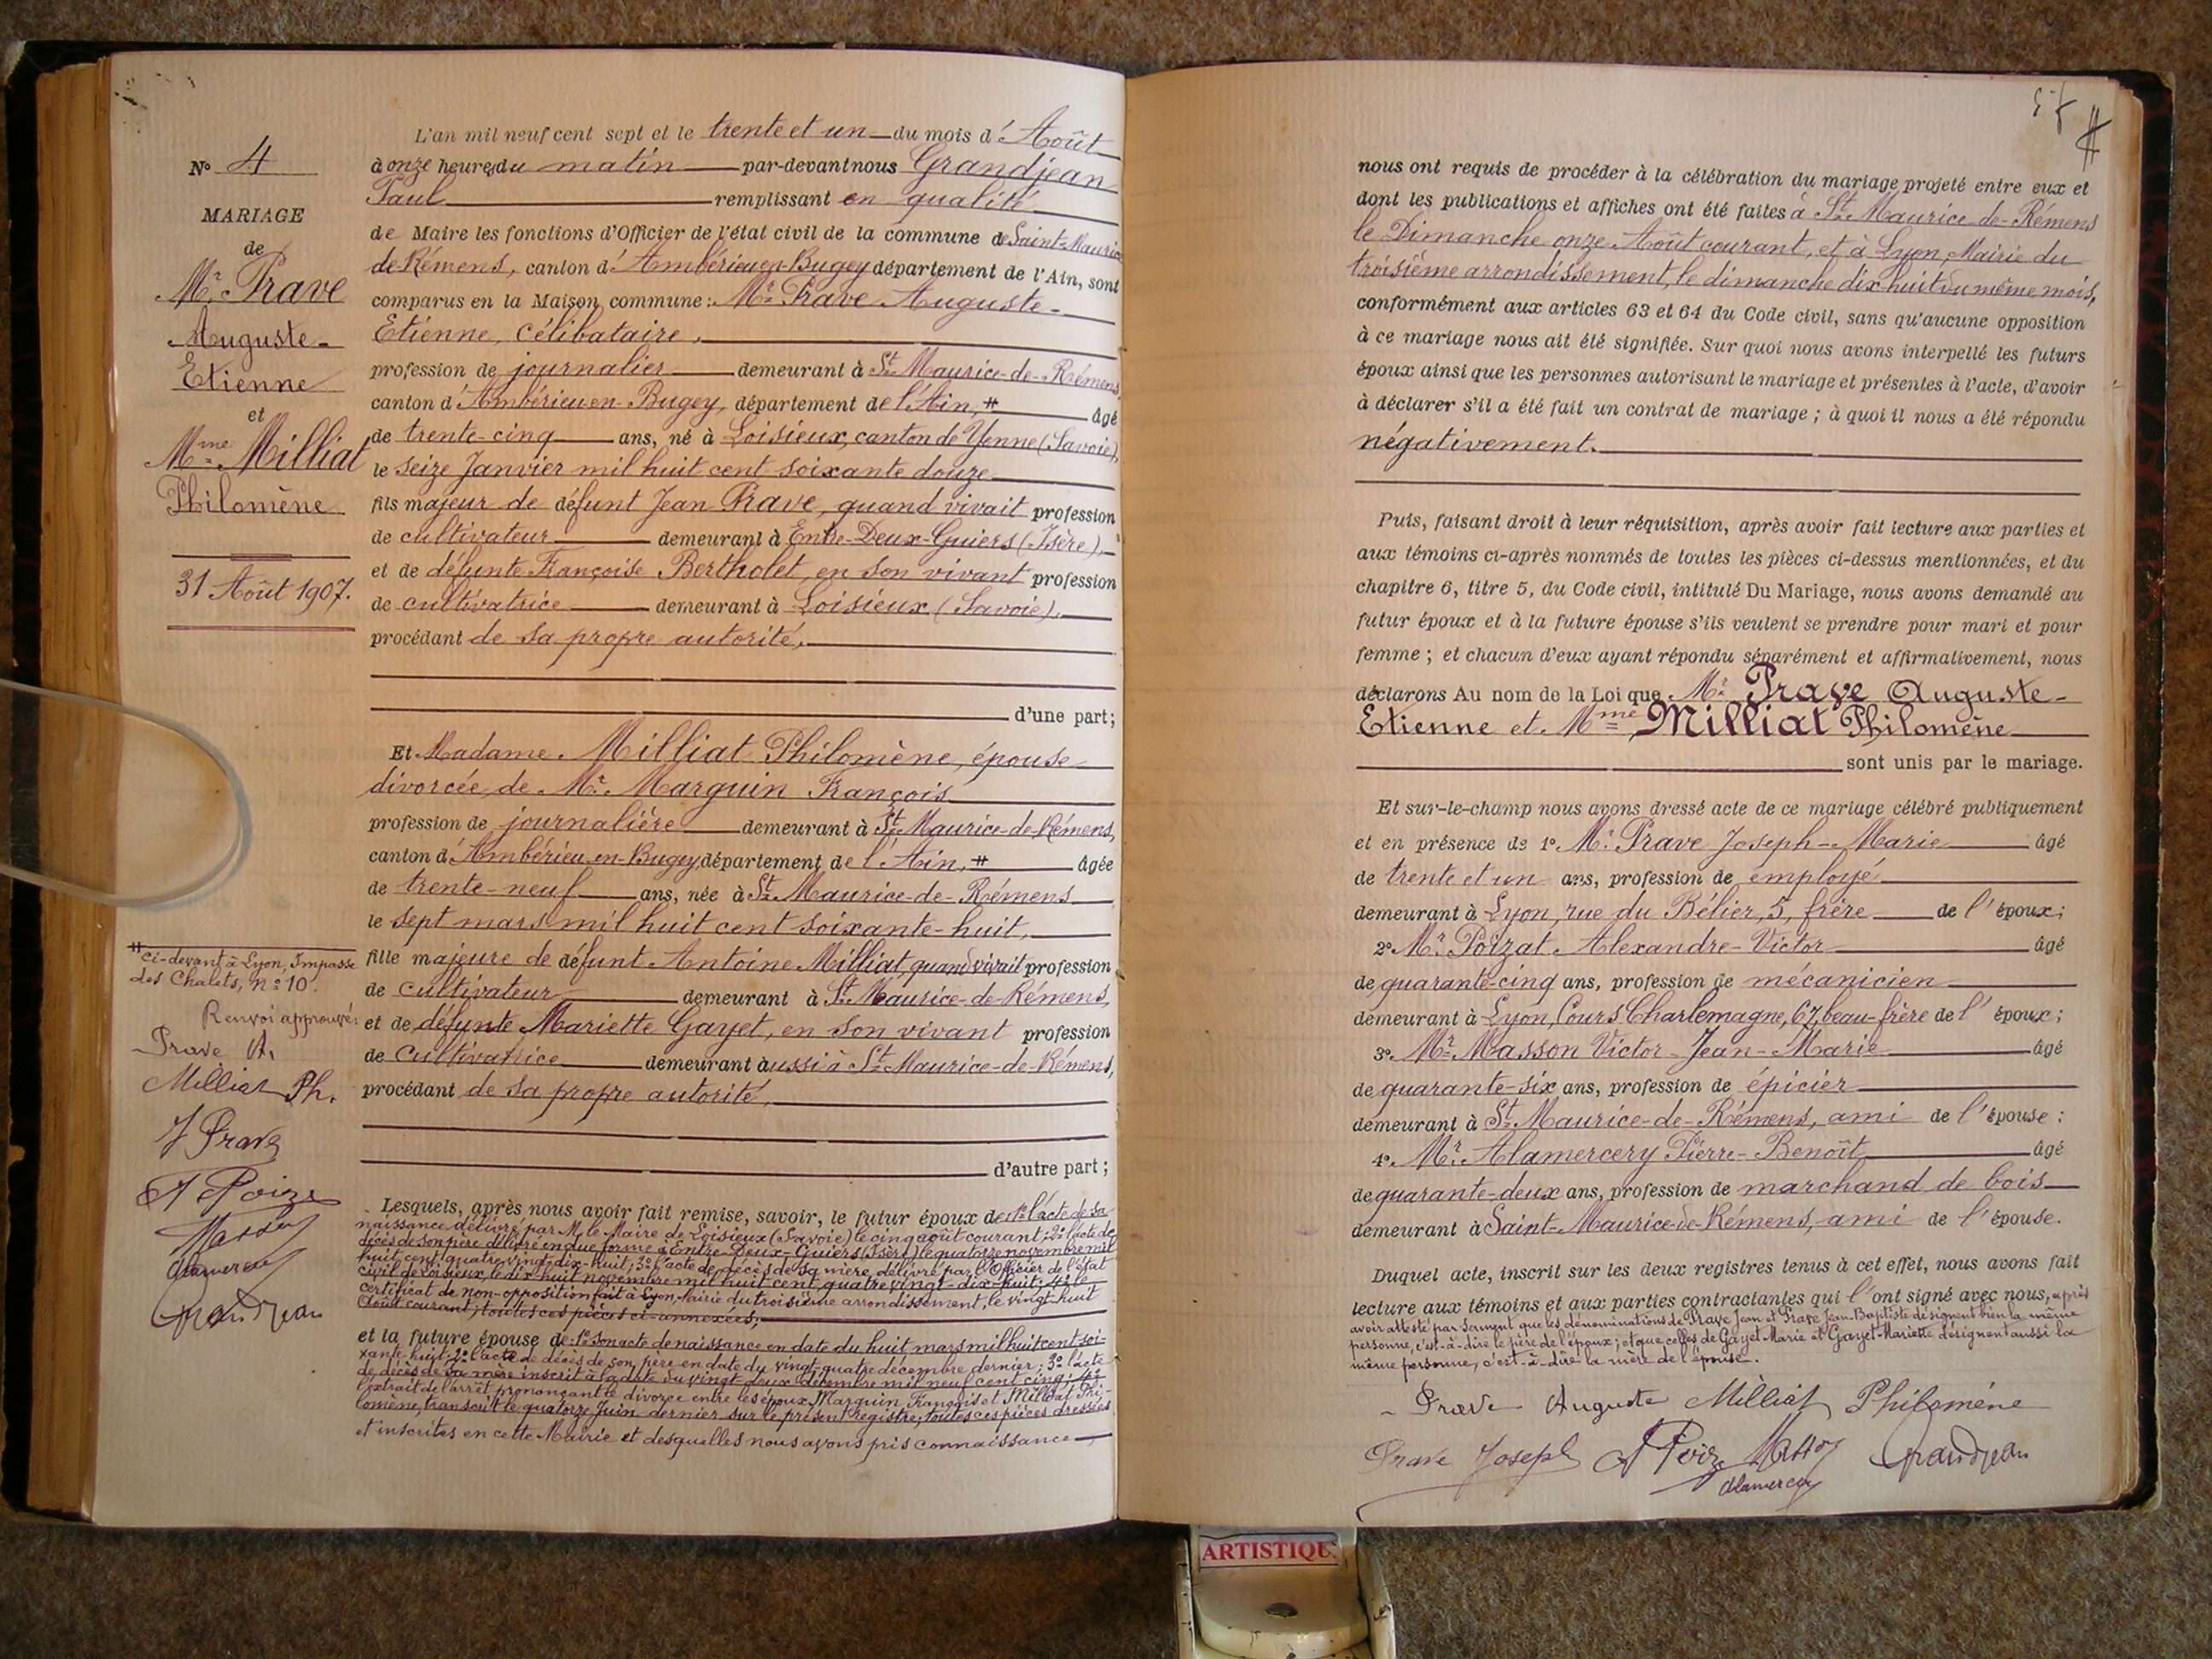 N° 4
MARIAGE
de
Mr. Prave
Auguste-
Etienne
et
Mme Milliat
Philomène
31 Août 1907.
# Ci-devant à Lyon, Impasse
des Chalets, n° 10.
Renvoi approuvé:
Prave A.
Milliat Ph.
J Prave
A Poiza
Masson
Alamercery
Grandjean
L'an mil neuf cent sept et le trente et un du mois d'Août
à onze heures du matin par-devant nous Grandjean
Paul remplissant en qualité
de Maire les fonctions d'Officier de l'état civil de la commune de Saint-Maurice
de Rémens, canton d'Ambérieu-en-Bugey département de l'Ain, sont
comparus en la Maison commune: Mr. Prave Auguste-
Etienne, célibataire,
profession de journalier demeurant à St. Maurice-de-Rémens,
canton d'Ambérieu-en-Bugey, département de l'Ain, # âgé
de trente-cinq ans, né à Loisieux, canton de Yenne (Savoie),
le seize Janvier mil huit cent soixante douze
fils majeur de défunt Jean Prave, quand vivait profession
de cultivateur demeurant à Entre-Deux-Guiers (Isère),
et de défunte Françoise Bertholet, en son vivant profession
de cultivatrice demeurant à Loisieux (Savoie),
procédant de sa propre autorité,
d'une part;
Et Madame Milliat Philomène, épouse
divorcée de Mr. Marguin François
profession de journalière demeurant à St. Maurice-de-Rémens,
canton d'Ambérieu-en-Bugey, département de l'Ain, # âgée
de trente-neuf ans, née à St. Maurice-de-Rémens
le sept mars mil huit cent soixante-huit,
fille majeure de défunt Antoine Milliat, quand vivait profession
de cultivateur demeurant à St. Maurice-de-Rémens,
et de défunte Mariette Gayet, en son vivant profession
de Cultivatrice demeurant aussi à St. Maurice-de-Rémens,
procédant de sa propre autorité,
d'autre part;
Lesquels, après nous avoir fait remise, savoir, le futur époux de: 1° l'acte de sa
naissance délivré par M. le Maire de Loisieux (Savoie) le cinq août courant; 2° l'acte de
décès de son père délivré en due forme à Entre-Deux-Guiers (Isère) le quatorze novembre mil
huit cent quatre vingt-dix-huit; 3° l'acte de décès de sa mère, délivré par l'Officier de l'état
civil de Loisieux, le dix-huit novembre mil huit cent quatre vingt-dix-huit; 4° le
certificat de non-opposition fait à Lyon, Mairie du troisième arrondissement, le vingt-huit
Août courant; toutes ces pièces ci-annexées;
et la future épouse de: 1° son acte de naissance en date du huit mars mil huit cent soi-
xante-huit; 2° l'acte de décès de son père en date du vingt-quatre décembre dernier; 3° l'acte
de décès de sa mère inscrit à la date du vingt-deux décembre mil neuf cent cinq; 4°
l'extrait de l'arrêt prononçant le divorce entre les époux Marguin François et Milliat Phi-
lomène, transcrit le quatorze Juin dernier sur le présent registre; toutes ces pièces dressées
et inscrites en cette Mairie et desquelles nous avons pris connaissance,
nous ont requis de procéder à la célébration du mariage projeté entre eux et
dont les publications et affiches ont été faites à St. Maurice-de-Rémens
le Dimanche onze Août courant, et à Lyon, Mairie du
troisième arrondissement, le dimanche dix-huit du même mois,
conformément aux articles 63 et 64 du Code civil, sans qu'aucune opposition
à ce mariage nous ait été signifiée. Sur quoi nous avons interpellé les futurs
époux ainsi que les personnes autorisant le mariage et présentes à l'acte, d'avoir
à déclarer s'il a été fait un contrat de mariage; à quoi il nous a été répondu
négativement.
Puis, faisant droit à leur réquisition, après avoir fait lecture aux parties et
aux témoins ci-après nommés de toutes les pièces ci-dessus mentionnées, et du
chapitre 6, titre 5, du Code civil, intitulé Du Mariage, nous avons demandé au
futur époux et à la future épouse s'ils veulent se prendre pour mari et pour
femme; et chacun d'eux ayant répondu séparément et affirmativement, nous
déclarons Au nom de la Loi que Mr. Prave Auguste-
Etienne et Mme Milliat Philomène
sont unis par le mariage.
Et sur-le-champ nous avons dressé acte de ce mariage célébré publiquement
et en présence de 1° Mr. Prave Joseph-Marie âgé
de trente et un ans, profession de employé
demeurant à Lyon, rue du Bélier, 5, frère de l'époux;
2° Mr. Poizat Alexandre-Victor âgé
de quarante-cinq ans, profession de mécanicien
demeurant à Lyon, Cours Charlemagne, 67, beau-frère de l'époux;
3° Mr. Masson Victor-Jean-Marie âgé
de quarante-six ans, profession de épicier
demeurant à St. Maurice-de-Rémens, ami de l'épouse:
4° Mr. Alamercery Pierre-Benoît âgé
de quarante-deux ans, profession de marchand de bois
demeurant à Saint-Maurice-de-Rémens, ami de l'épouse.
Duquel acte, inscrit sur les deux registres tenus à cet effet, nous avons fait
lecture aux témoins et aux parties contractantes qui l'ont signé avec nous, après
avoir attesté par serment que les dénominations de Prave Jean et Prave Jean-Baptiste désignent bien la même
personne, c'est-à-dire le père de l'époux; et que celles de Gayet Marie et Gayet Mariette désignent aussi la
même personne, c'est-à-dire la mère de l'épouse.
Prave Auguste Milliat Philomène
Prave Joseph A Poiza Masson Grandjean
Alamercery
ARTISTIQU